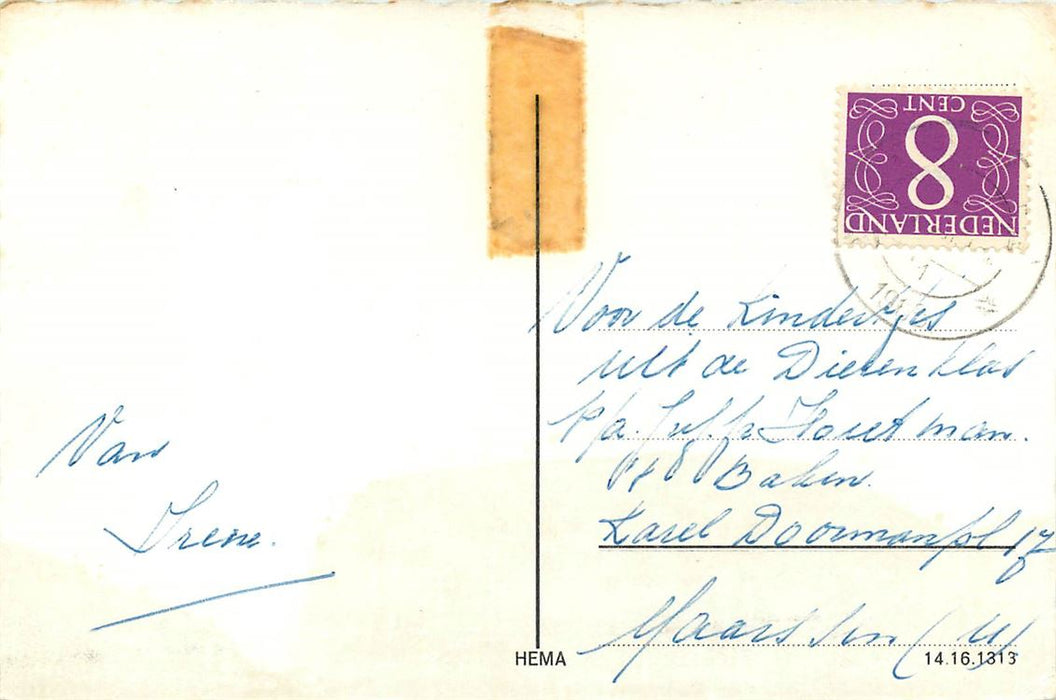 CENT
8
NEDERLAND
1
Voor de Kindertjes
uit de Dierenklas
p/a. Juf. Houtman.
Baken.
Karel Doormanpl 17
Maarssen (U)
Van
Irene.
HEMA
14.16.1313